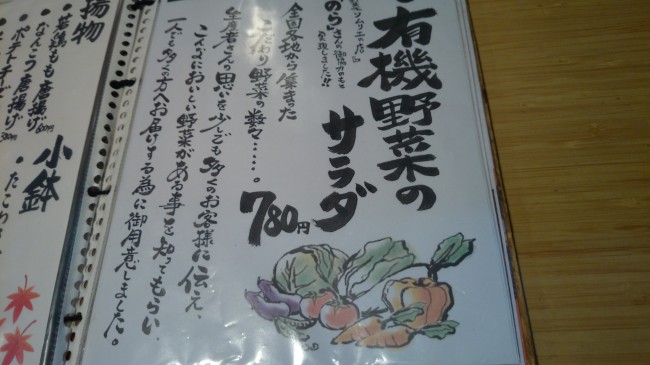 有機野菜の
サラダ
780円
のら さんの御協力のもと
実現しました!!
全国各地から集まった
こだわり野菜の数々……。
生産者さんの思いを少しでも多くのお客様に伝え、
こんなにおいしい野菜がある事を知ってもらい、
一人でも多くの方へお届けする為に御用意しました。
揚物
・若鶏もも唐揚げ
・なんこつ唐揚げ
・ポテトチーズ
小鉢
・たこわさ